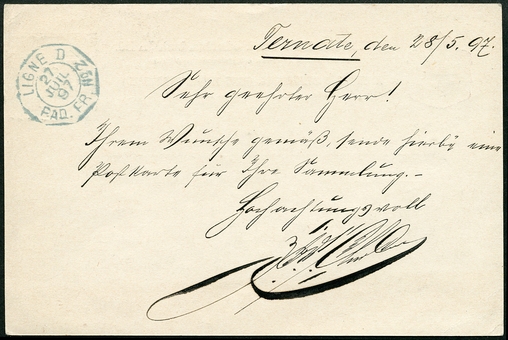 Ternate, den 28/5. 97.
LIGNE D
27
JUIL
97
PAQ. FR.
Sehr geehrter Herr!
Ihrem Wunsche gemäß, sende hierbÿ eine
Postkarte für Ihre Sammlung. –
Hochachtungsvoll